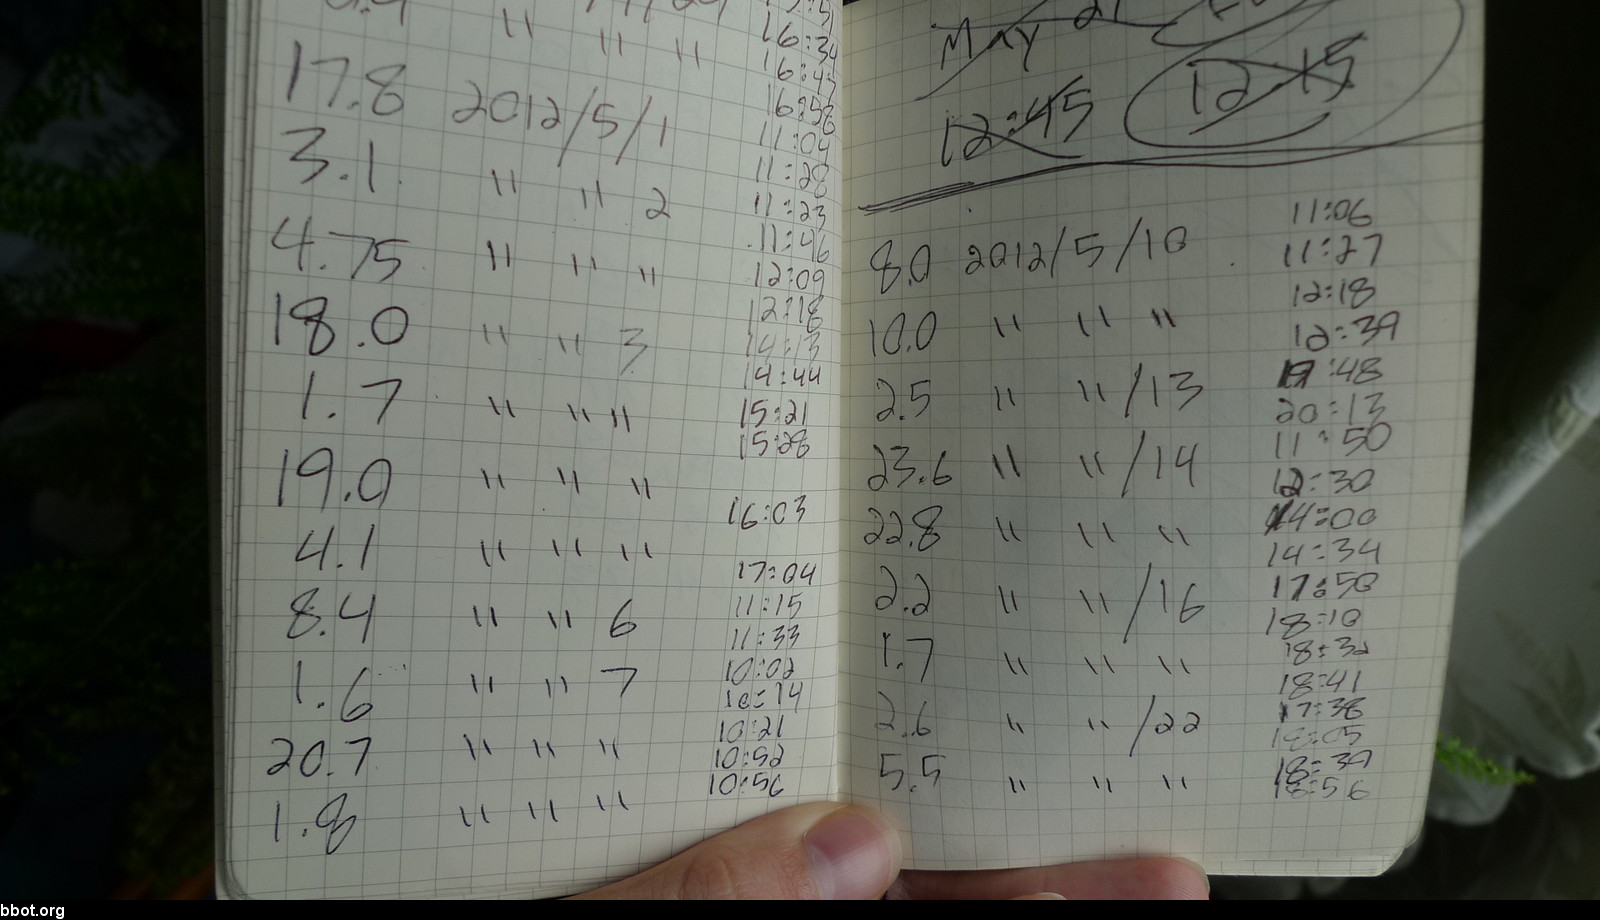 " " "
17.8 2012/5/1
3.1 " " 2
4.75 " " "
18.0 " " 3
1.7 " " "
19.0 " " "
4.1 " " "
8.4 " " 6
1.6 " " 7
20.7 " " "
1.8 " " "
16:34
16:43
16:58
11:04
11:20
11:23
11:46
12:09
12:18
14:13
14:44
15:21
15:28
16:03
17:04
11:15
11:33
10:02
10:14
10:21
10:52
10:56
May 21
12:45 12:15
8.0 2012/5/10
10.0 " " "
2.5 " " /13
23.6 " " /14
22.8 " " "
2.2 " " /16
1.7 " " "
2.6 " " /22
5.5 " " "
11:06
11:27
12:18
12:39
19:48
20:13
11:50
12:30
14:00
14:34
17:50
18:10
18:32
18:41
17:38
18:05
18:39
18:56
bbot.org